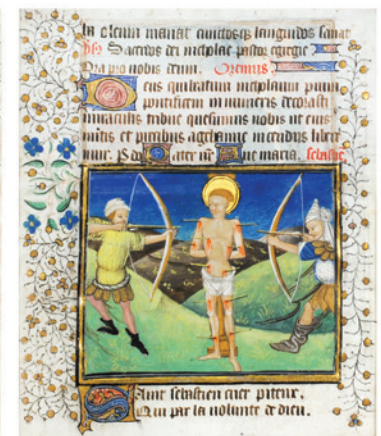 In olenm manat cunctosq; languidos sanat
Sacerdos dei nicholae pastor egregie
Ora pro nobis deum. Oremus.
eus qui beatum nicholaum
pontificem in numeris decorasti
miraculis tribue quesumus nobis ut eius
meritis et precibus a gehenne incendiis
ater nr̄ Aue maria.
aint sebastien cuer piteux.
Qui par la uolunte de dieu.